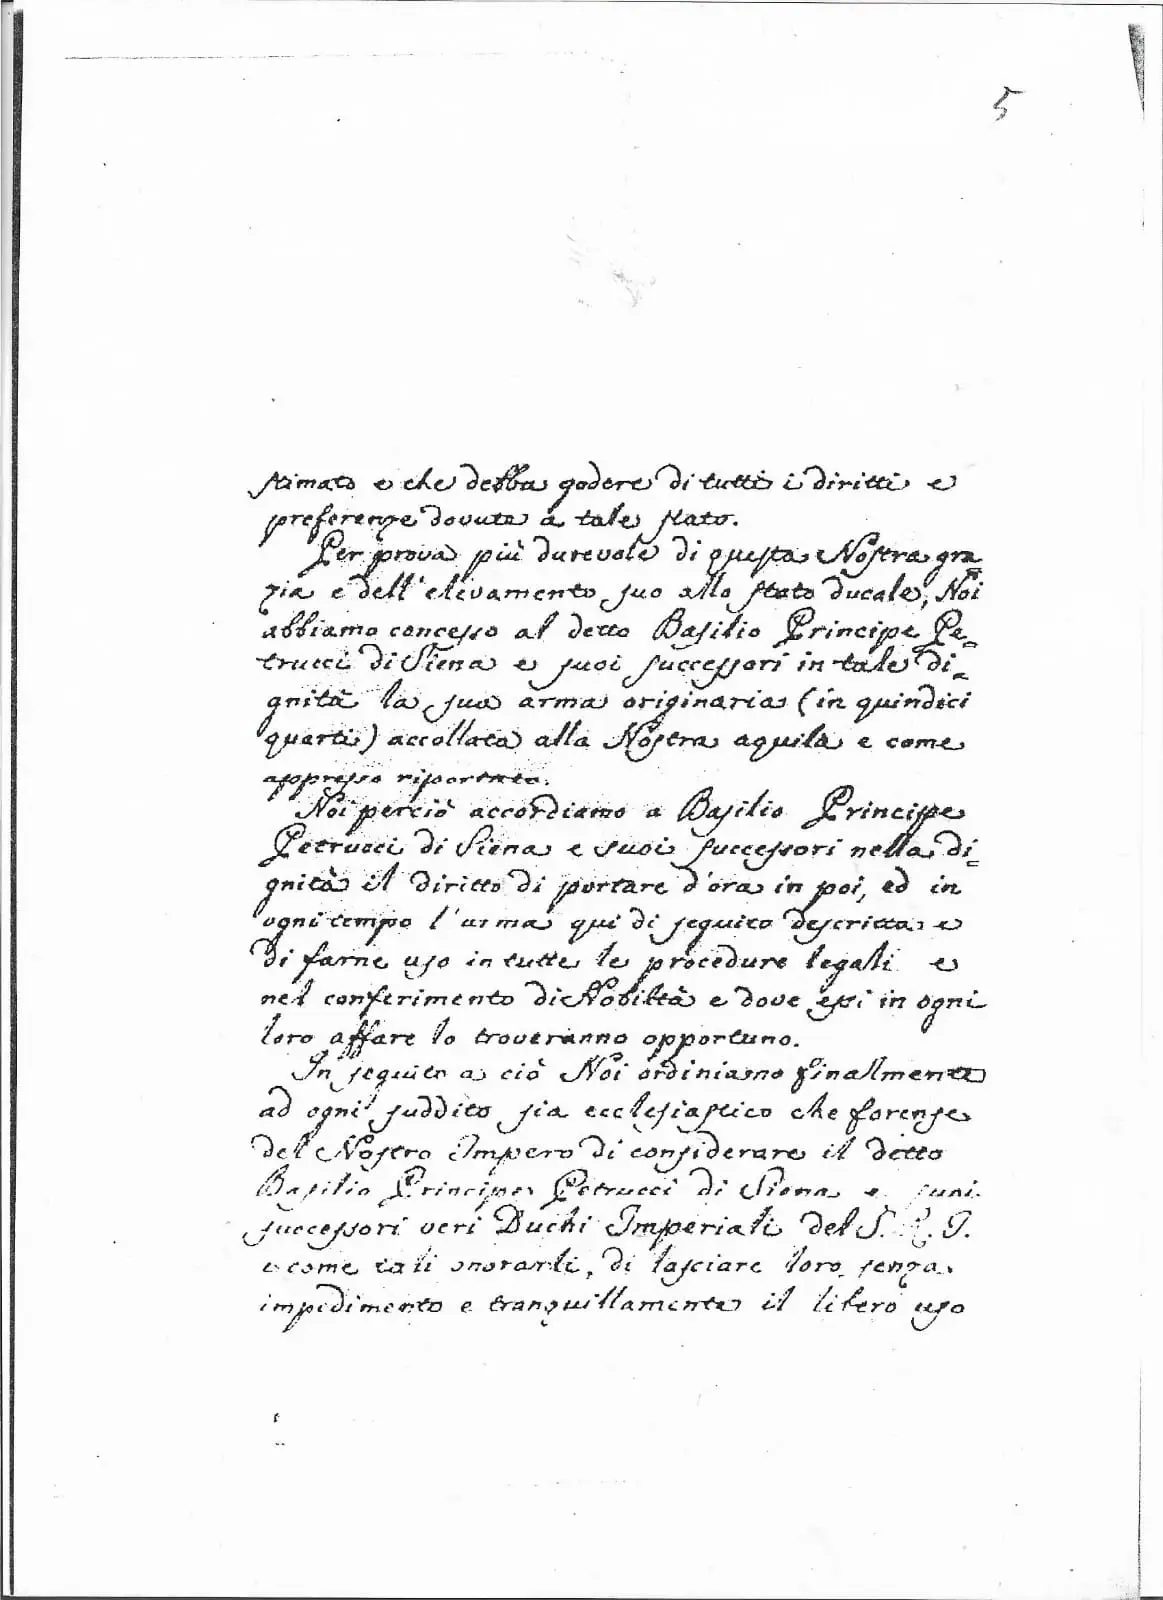 5
stimato e che debba godere di tutti i diritti e
preferenze dovute a tale stato.
Per prova più durevole di questa Nostra gra
zia e dell'elevamento suo allo stato ducale, Noi
abbiamo concesso al detto Basilio Principe Pe=
trucci di Siena e suoi successori in tale di=
gnità la sua arma originaria (in quindici
quarti) accollata alla Nostra aquila e come
appresso riportata.
Noi perciò accordiamo a Basilio Principe
Petrucci di Siena e suoi successori nella di=
gnità il diritto di portare d'ora in poi, ed in
ogni tempo l'arma qui di seguito descritta e
di farne uso in tutte le procedure legali e
nel conferimento di Nobiltà e dove essi in ogni
loro affare lo troveranno opportuno.
In seguito a ciò Noi ordiniamo finalmente
ad ogni suddito sia ecclesiastico che forense
del Nostro Impero di considerare il detto
Basilio Principe Petrucci di Siena e suoi
successori veri Duchi Imperiali del S. R. I.
e come tali onorarli, di lasciare loro senza
impedimento e tranquillamente il libero uso